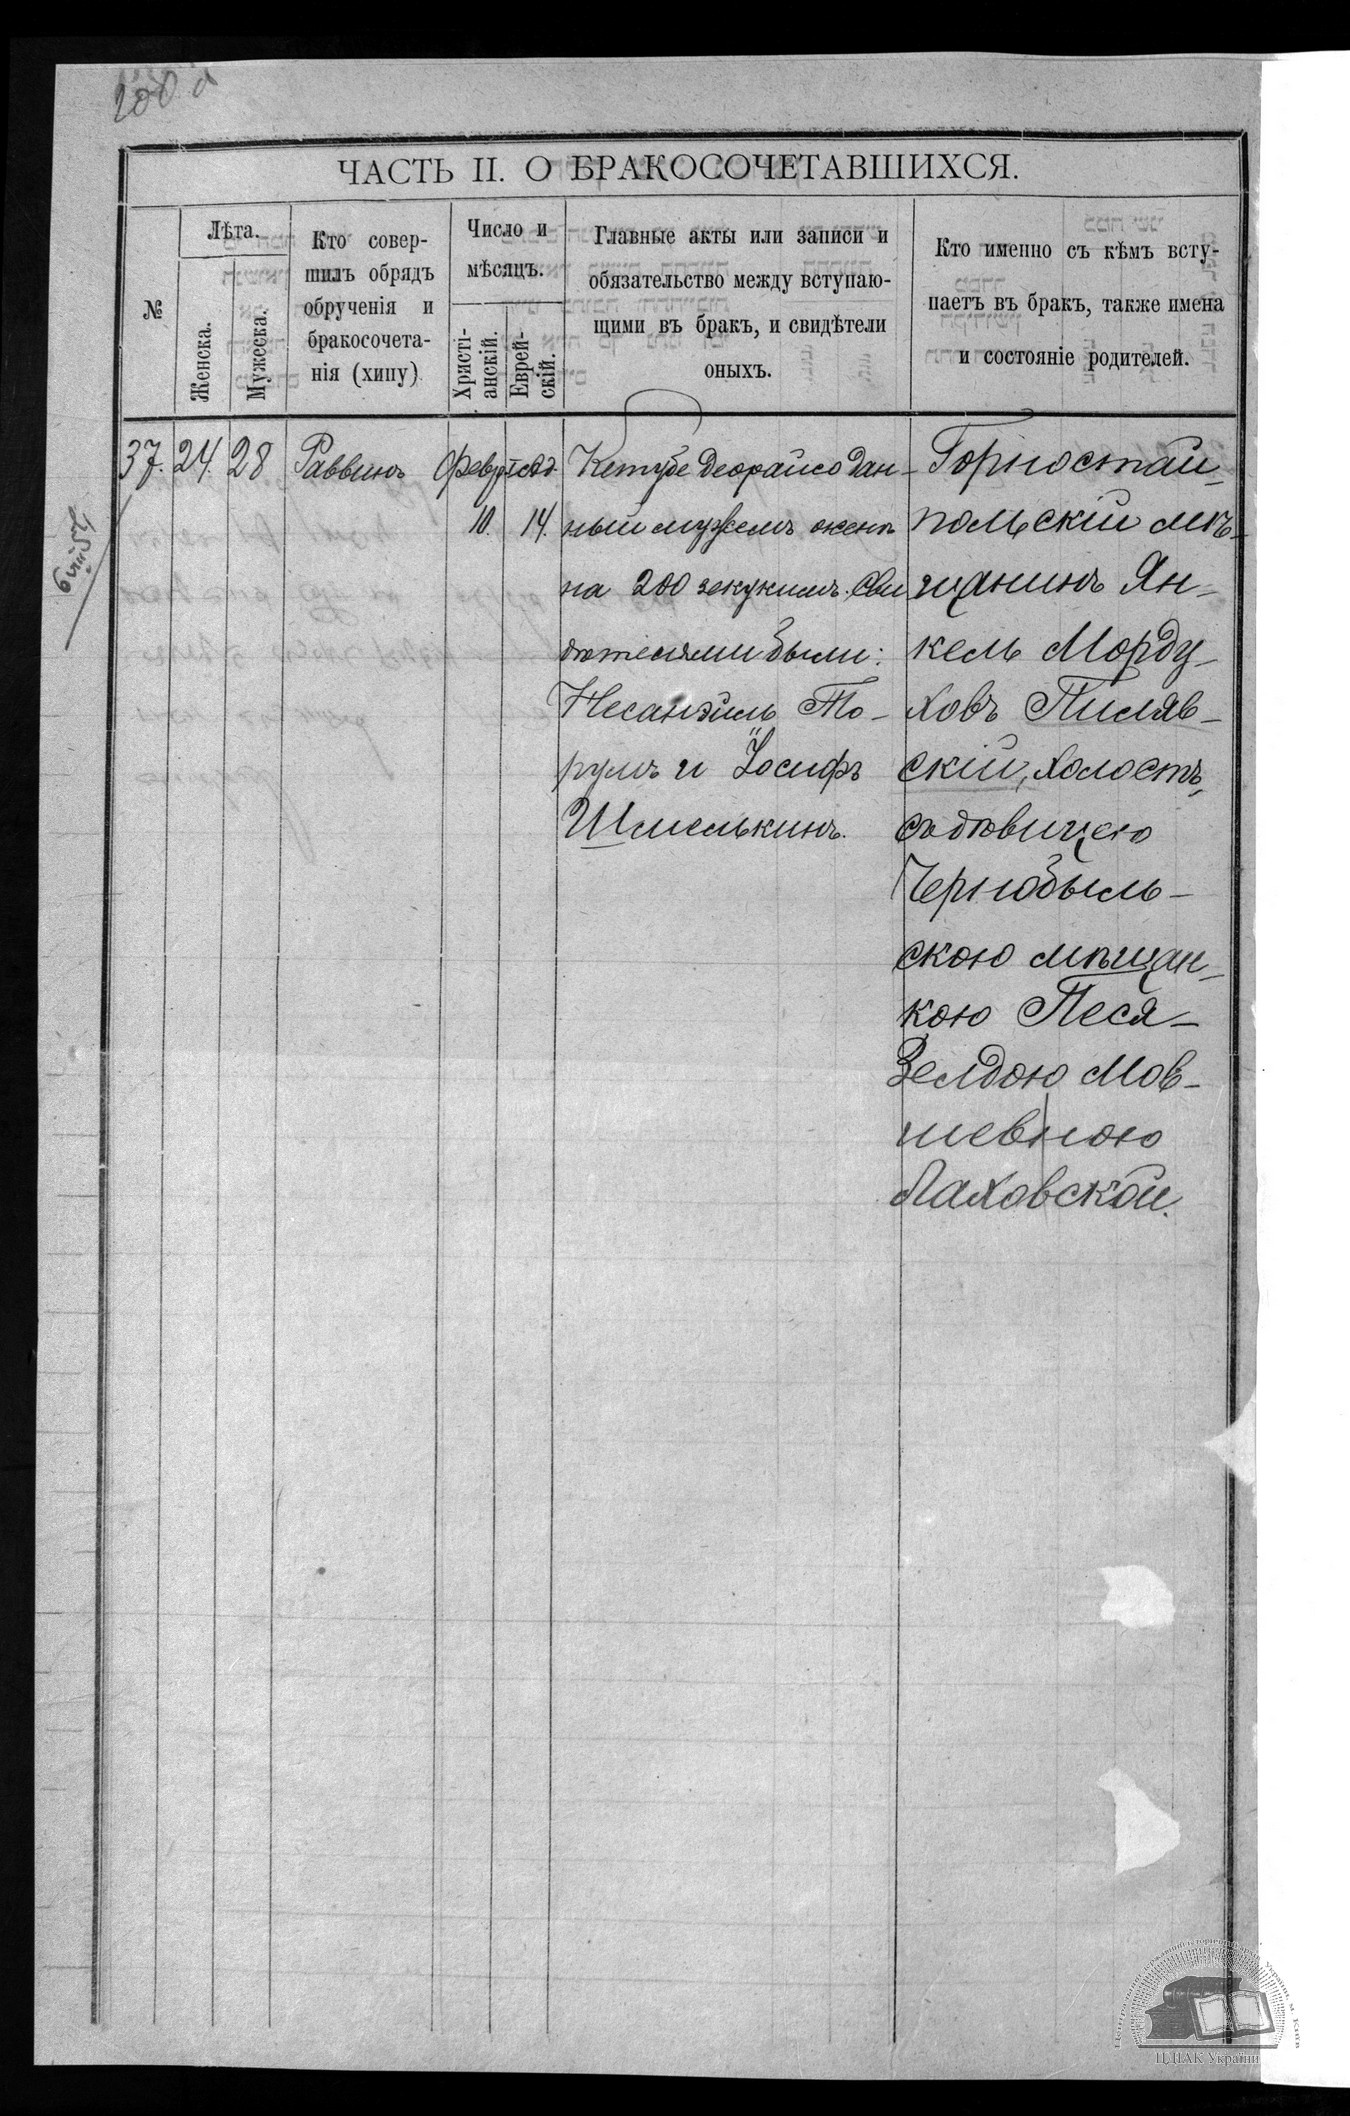 ЧАСТЬ II. О БРАКОСОЧЕТАВШИХСЯ.
№
Лѣта.
Женска.
Мужеска.
Кто совер-
шилъ обрядъ
обрученія и
бракосочета-
нія (хипу)
Число и
мѣсяцъ.
Христі-
анскій.
Еврей-
скій.
Главные акты или записи и
обязательство между вступаю-
щими въ бракъ, и свидѣтели
оныхъ.
Кто именно съ кѣмъ всту-
паетъ въ бракъ, также имена
и состояніе родителей.
37. 24. 28 Раввинъ
10. 14.
Кетубе деорайсо дан-
ный мужемъ женѣ
на 200 зекукимъ. Сви
дѣтелями были:
Несанэиль То-
румъ и Іосифъ
Шмелькинъ.
Горностай-
польскій мѣ-
щанинъ Ян-
кель Морду-
ховъ Пиляв-
скій, холостъ,
съ дѣвицею
Чернобыль-
скою мѣщан-
кою Песя-
Зелдою Мов-
шевною
Лаховской.
ЦДІАК України